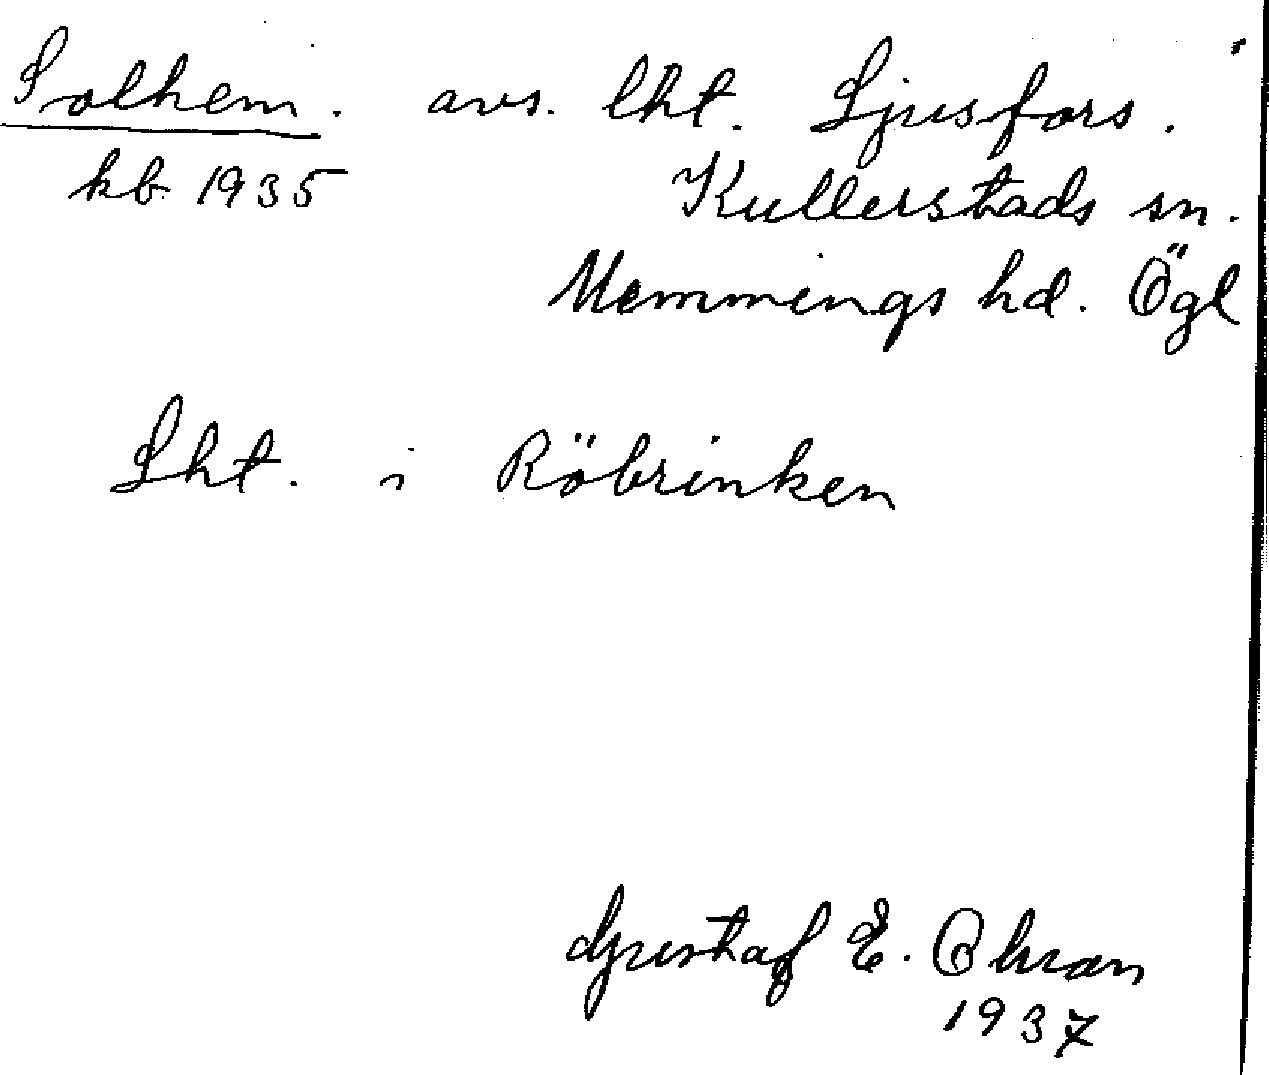 Solhem. avs. lht. Ljusfors.
kb. 1935 Kullerstads sn.
Memmings hd. Ögl
Lht. i Röbrinken
Gustaf E. Ohran
1937